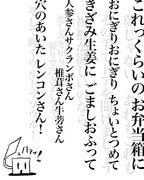 これっくらいのお弁当箱に
おにぎりおにぎり ちょいとつめて
きざみ生姜に ごましおふって
人参さんサクランボさん
椎茸さん牛蒡さん
穴のあいた レンコンさん！